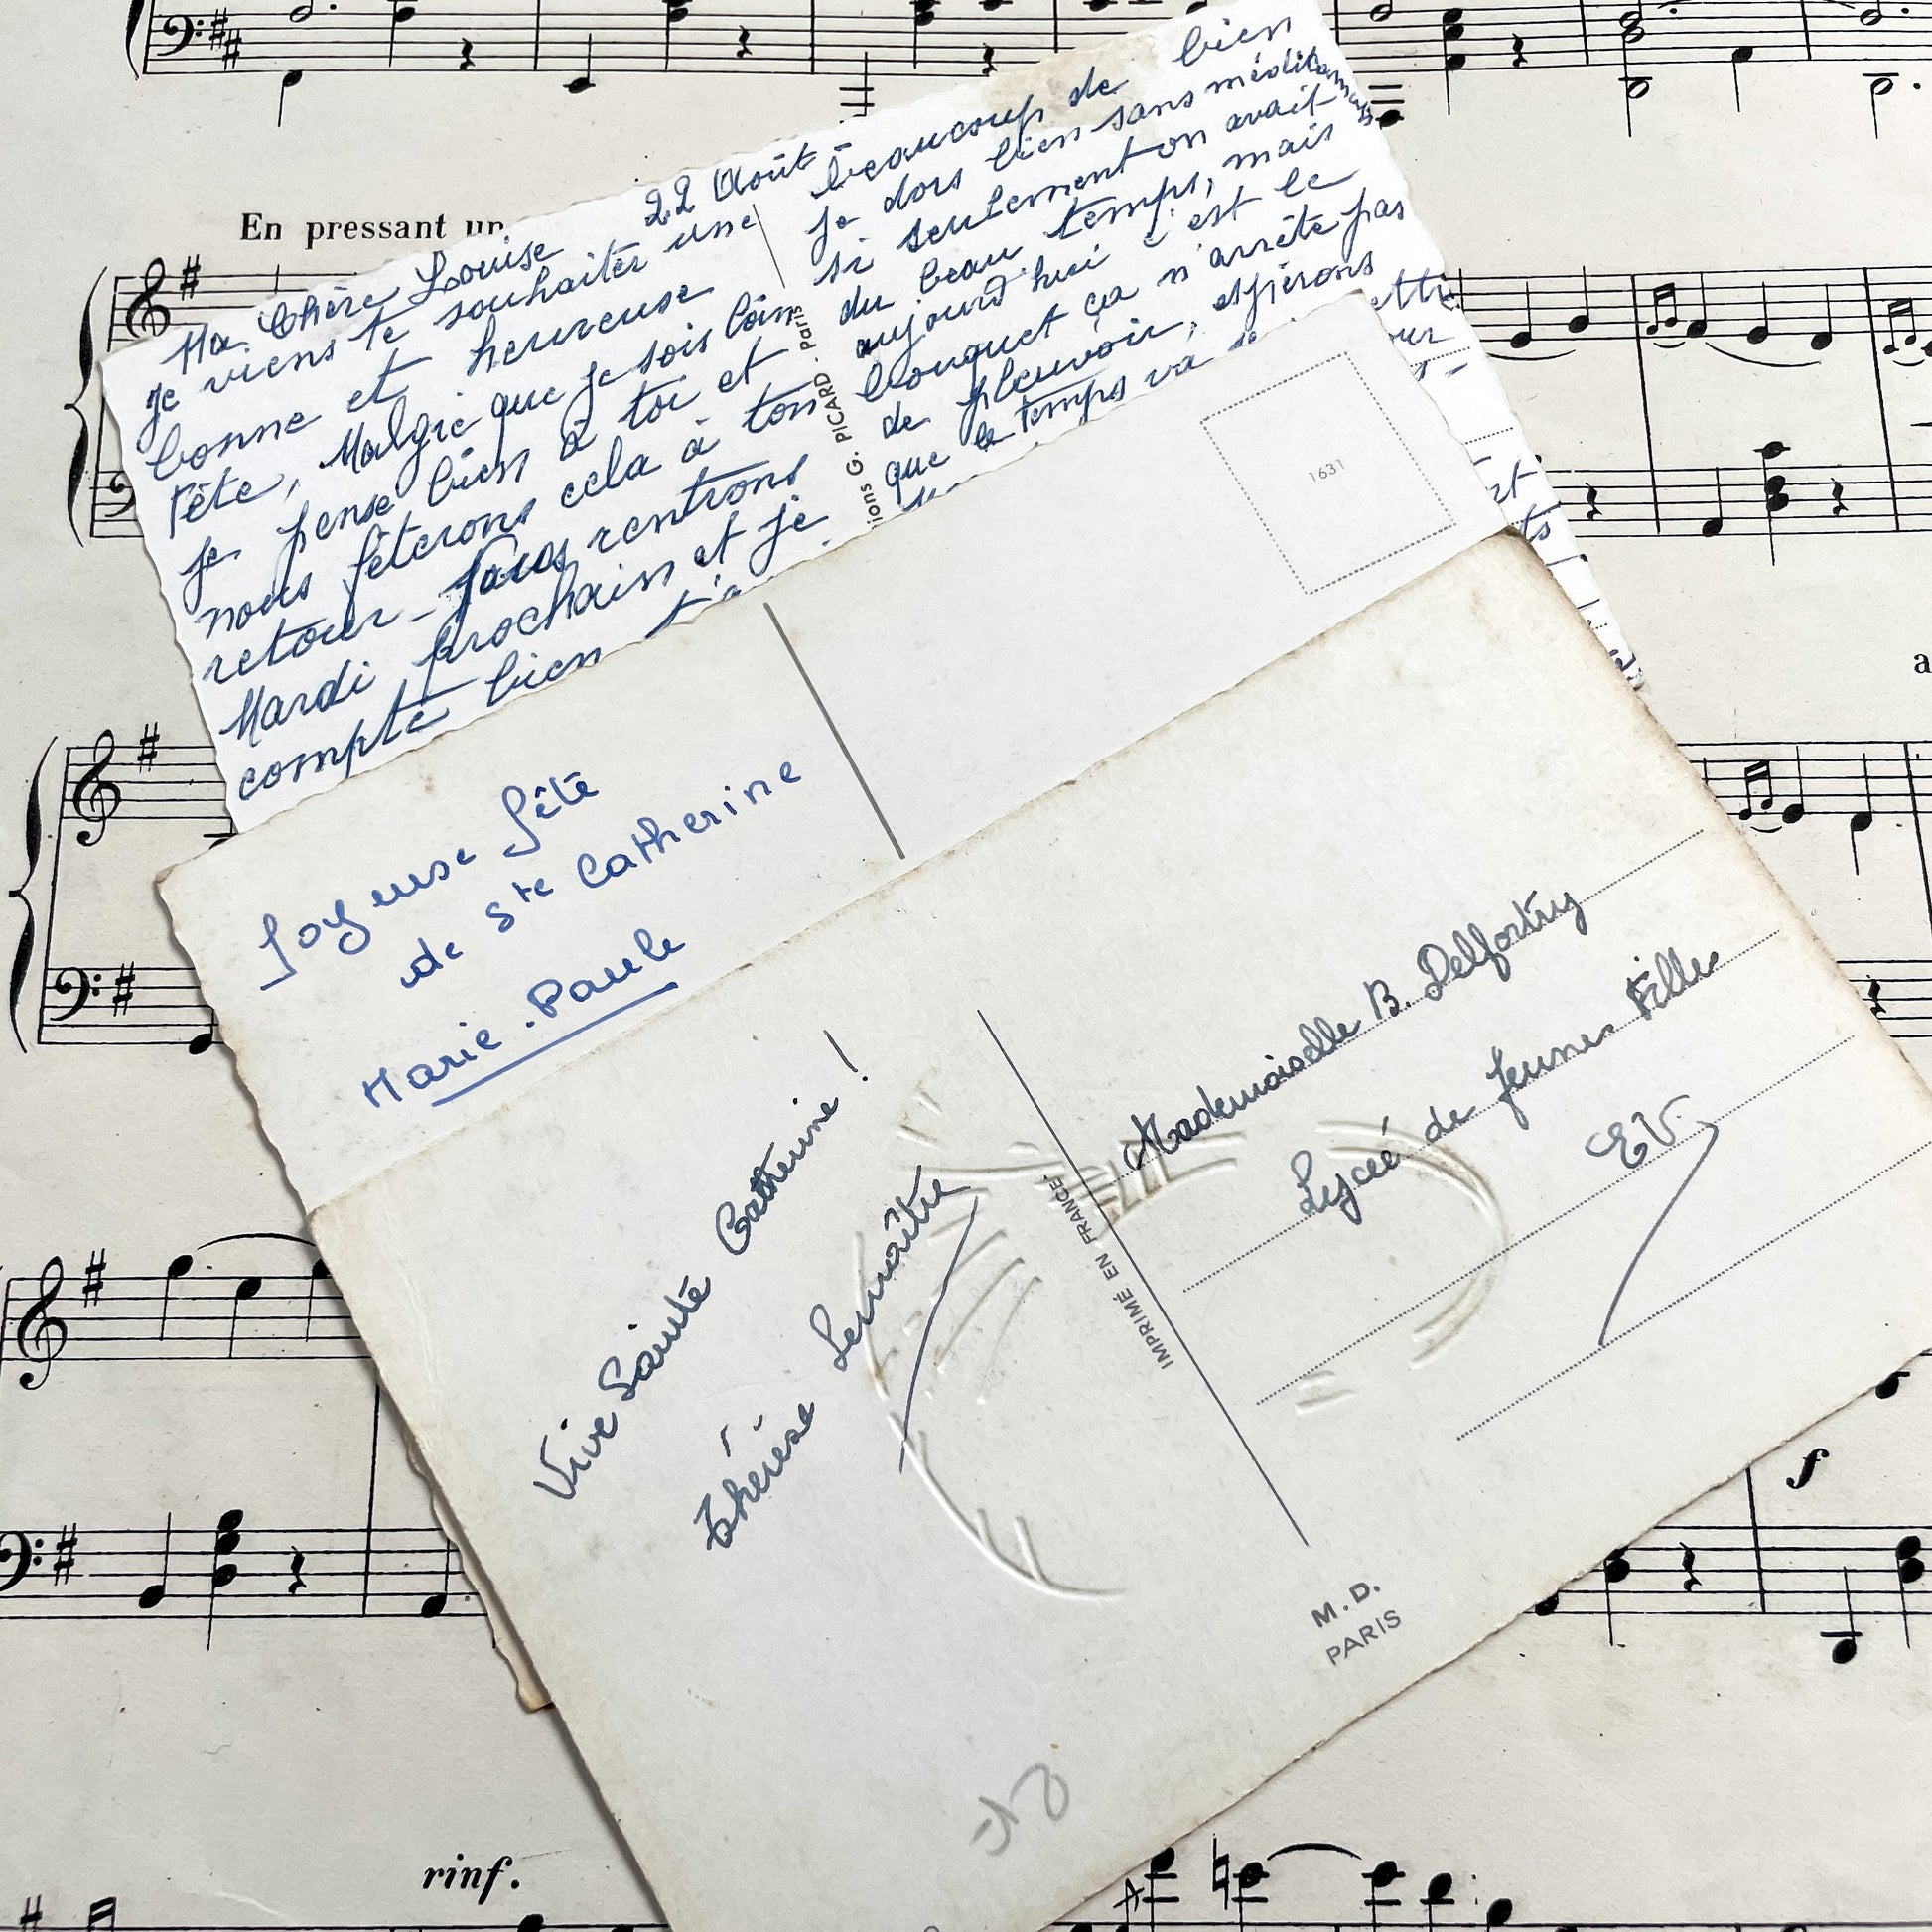 En pressant un
22 Août
Ma Chère Louise
je viens te souhaiter une
bonne et heureuse
Fête, Malgré que je sois loin
je pense bien à toi et
nous fêterons cela à ton
retour - Nous rentrons
Mardi prochain et je
compte bien
beaucoup de bien
je dors bien sans médicaments
si seulement on avait
du beau temps, mais
aujourd'hui c'est le
bouquet ça n'arrête pas
de pleuvoir, espérons
que le temps va
ions G. PICARD - Paris
1631
Joyeuse fête
de Ste Catherine
Marie-Paule
Vive Sainte Catherine !
Thérèse Lemaître
IMPRIMÉ EN FRANCE
Mademoiselle B. Delfortry
Lycée de Jeunes Filles
EV.
M. D.
PARIS
f
rinf.